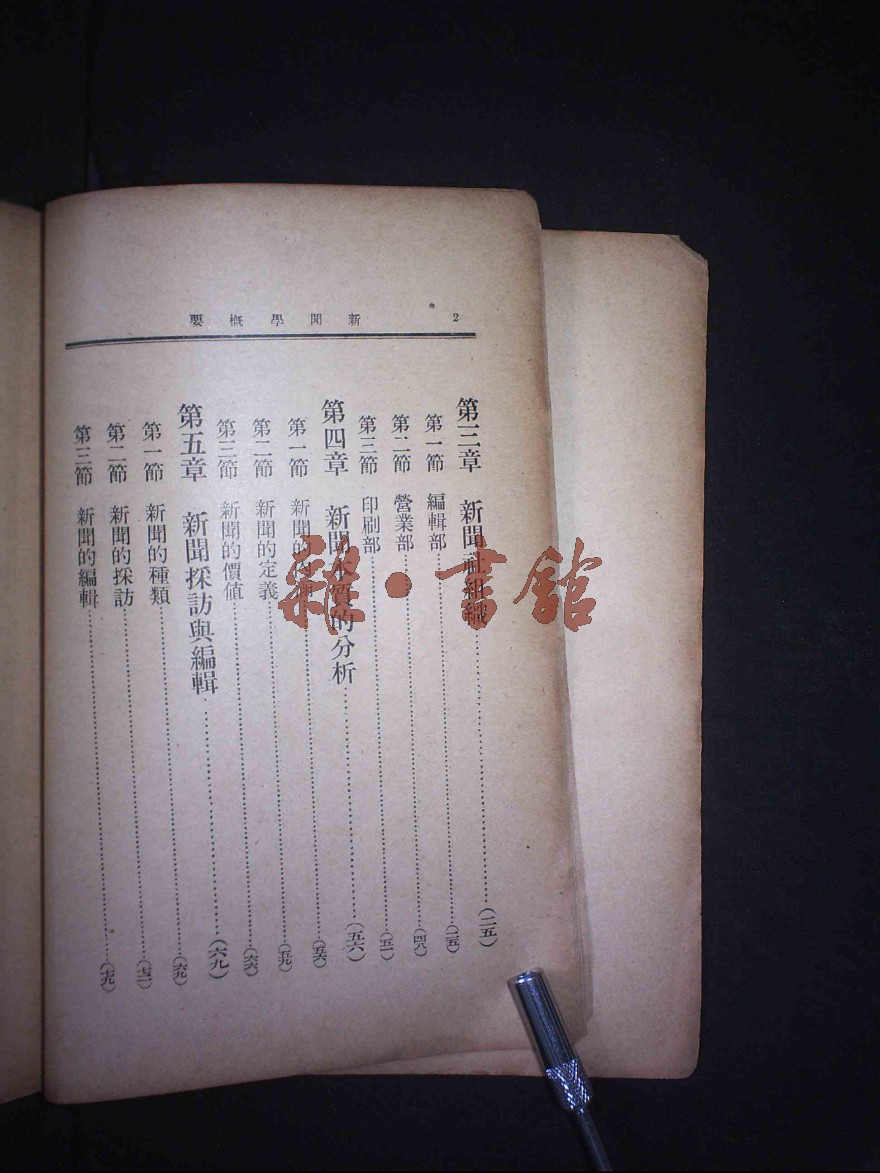 2 新聞學概要
第三章 新聞社組織……(二五)
第一節 編輯部……(二五)
第二節 營業部……(四八)
第三節 印刷部……(五一)
第四章 新聞本質的分析……(五六)
第一節 新聞的……(五六)
第二節 新聞的定義……(五九)
第三節 新聞的價值……(六六)
第五章 新聞採訪與編輯……(六九)
第一節 新聞的種類……(六九)
第二節 新聞的採訪……(七二)
第三節 新聞的編輯……(七九)
雜·書館